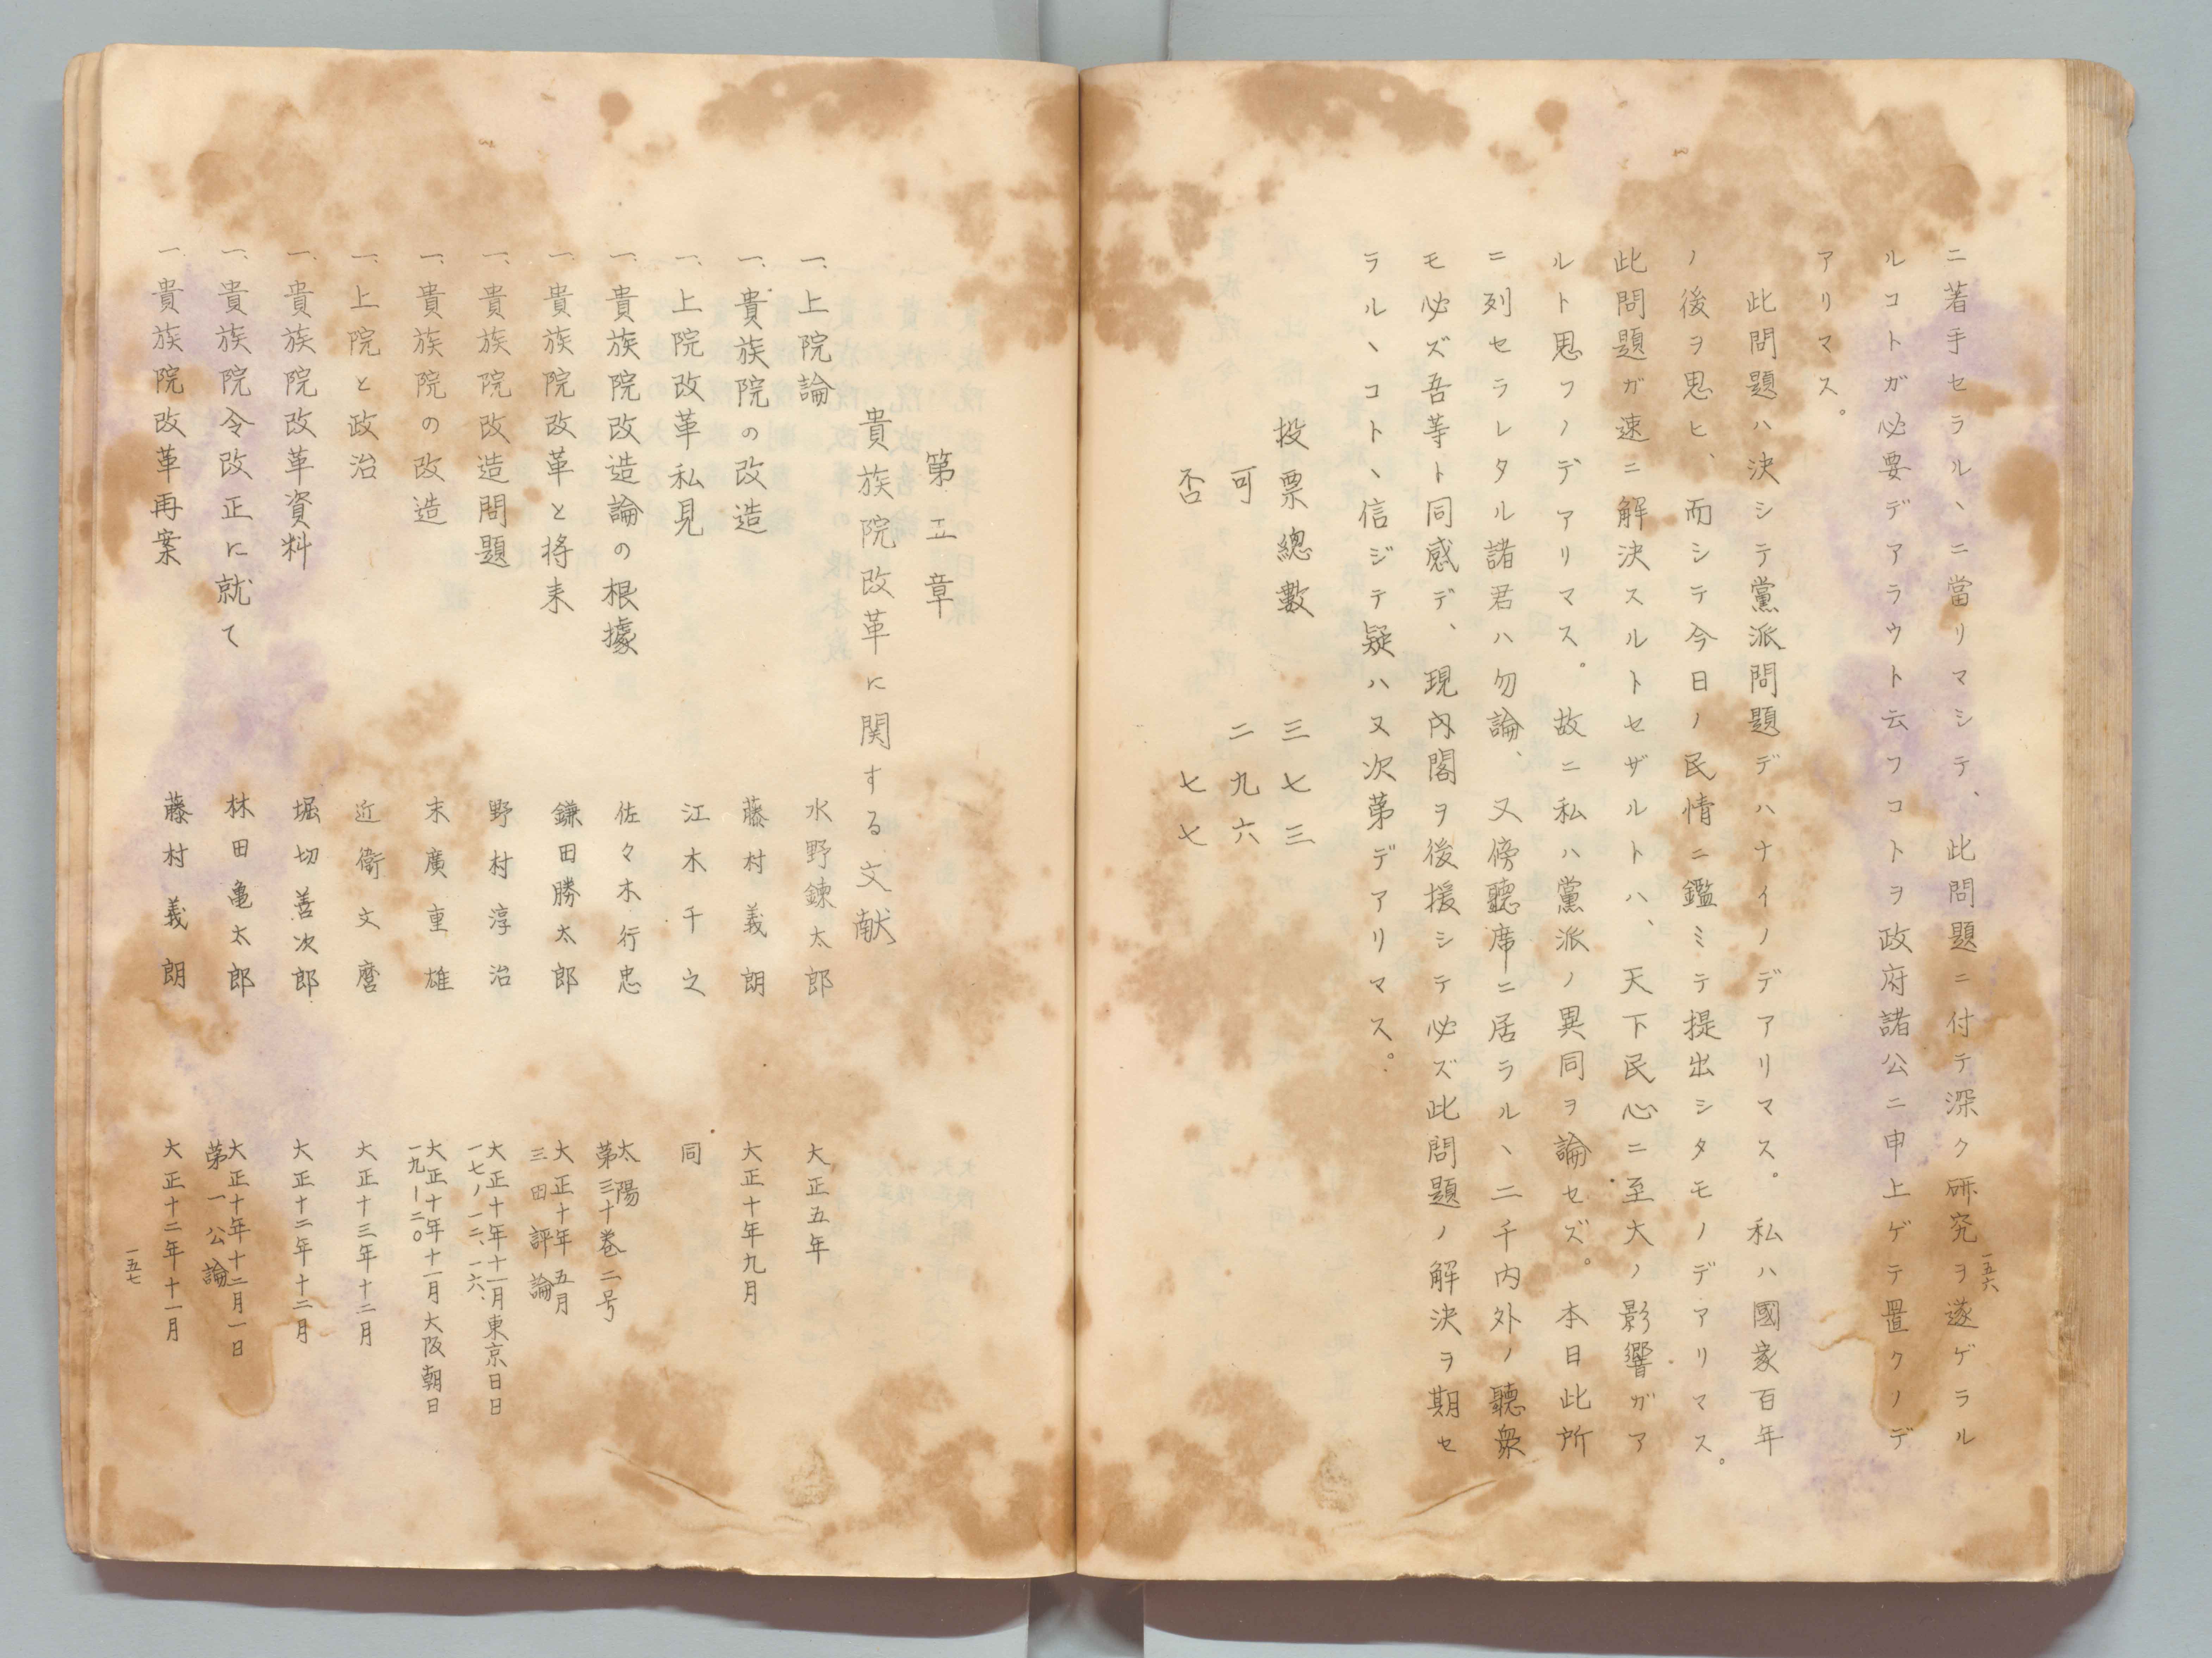 一五六
ニ著手セラルヽニ當リマシテ、此問題ニ付テ深ク研究ヲ遂ゲラル
ルコトガ必要デアラウト云フコトヲ政府諸公ニ申上ゲテ置クノデ
アリマス。
此問題ハ決シテ黨派問題デハナイノデアリマス。私ハ國家百年
ノ後ヲ思ヒ、而シテ今日ノ民情ニ鑑ミテ提出シタモノデアリマス。
此問題ガ速ニ解決スルトセザルトハ、天下民心ニ至大ノ影響ガア
ルト思フノデアリマス。故ニ私ハ黨派ノ異同ヲ論セズ。本日此所
ニ列セラレタル諸君ハ勿論、又傍聽席ニ居ラルヽ二千内外ノ聽衆
モ必ズ吾等ト同感デ、現内閣ヲ後援シテ必ズ此問題ノ解決ヲ期セ
ラルヽコトヽ信ジテ疑ハ又次第デアリマス。
投票總數　三七三
可　二九六
否　七七
第五章
貴族院改革に関する文献
一、上院論　水野錬太郎　大正五年
一、貴族院の改造　藤村義朗　大正十年九月
一、上院改革私見　江木千之　同
一、貴族院改造論の根據　佐々木行忠　太陽
第三十巻二号
一、貴族院改革と将来　鎌田勝太郎　大正十年五月
三田評論
一、貴族院改造問題　野村淳治　大正十年十一月東京日日
一七ノ一二、一六、
一、貴族院の改造　末廣重雄　大正十年十一月大阪朝日
一九ー二〇
一、上院と政治　近衛文麿　大正十三年十二月
一、貴族院改革資料　堀切善次郎　大正十二年十二月
一、貴族院令改正に就て　林田亀太郎　大正十年十二月一日
第一公論
一、貴族院改革再案　藤村義朗　大正十二年十一月
一五七